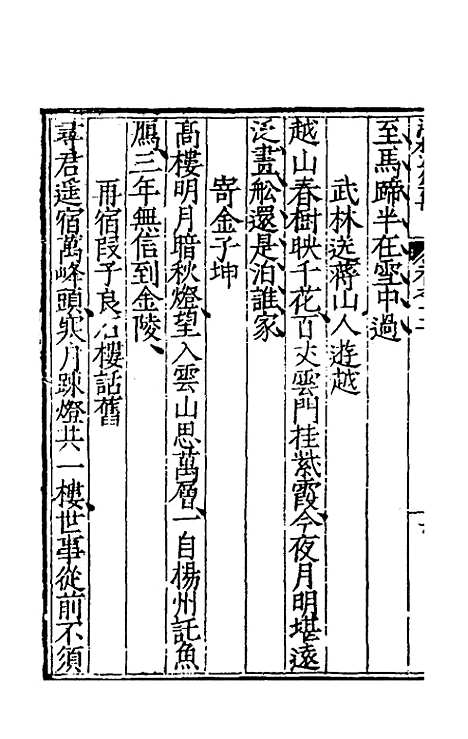 至馬蹄半在雪中過
武林送蔣山人遊越
越山春樹映千花百丈雲門挂紫霞今夜月明堪遠
泛畫舩還是泊誰家
寄金子坤
高樓明月暗秋燈望入雲山思萬層一自楊州託魚
鴈三年無信到金陵
再宿段子良石樓話舊
尋君遥宿萬峰頭寒月踈燈共一樓世事從前不須